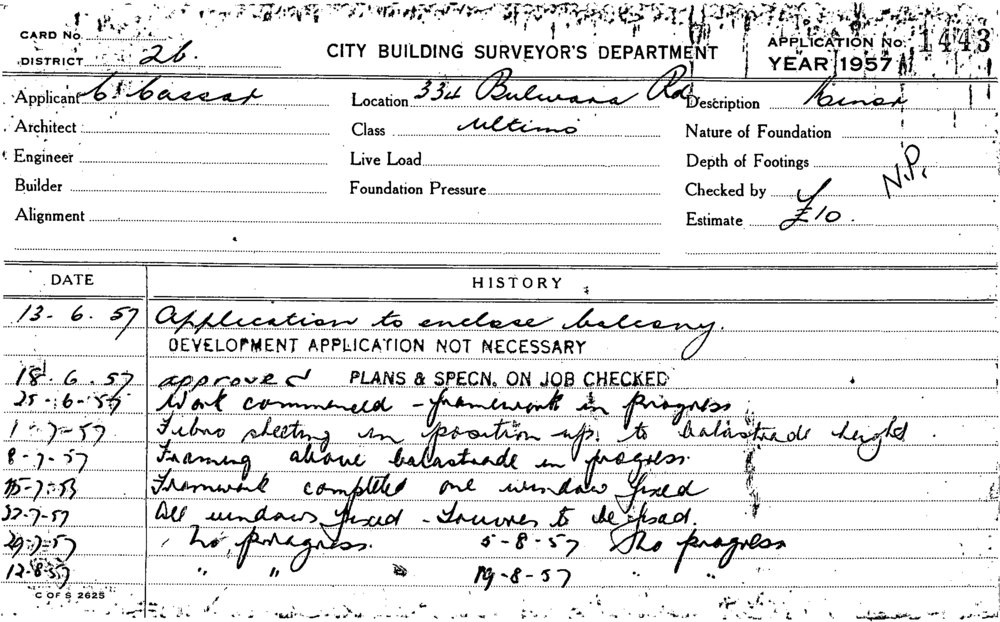 CARD No.
DISTRICT 26.
CITY BUILDING SURVEYOR'S DEPARTMENT
APPLICATION No. 1443
YEAR 1957
Applicant C. Cassar
Location 334 Bulwara Rd
Description Minor
Architect
Class Ultimo
Nature of Foundation
Engineer
Live Load
Depth of Footings
N.P.
Builder
Foundation Pressure
Checked by
Alignment
Estimate £10.
DATE HISTORY
13-6.57 Application to enclose balcony.
DEVELOPMENT APPLICATION NOT NECESSARY
18.6.57 approved PLANS & SPECN. ON JOB CHECKED
25-6-57 Work commenced - framework in progress
1-7-57 Fibro sheeting in position up to balastrade height.
8-7-57 Framing above balastrade in progress.
15-7-57 Framwork completed one window fixed
22-7-57 All windows fixed - Louvres to be fixed.
29-7-57 No progress. 5-8-57 No progress
12-8-57 " " 19-8-57 " "
C OF S 2625